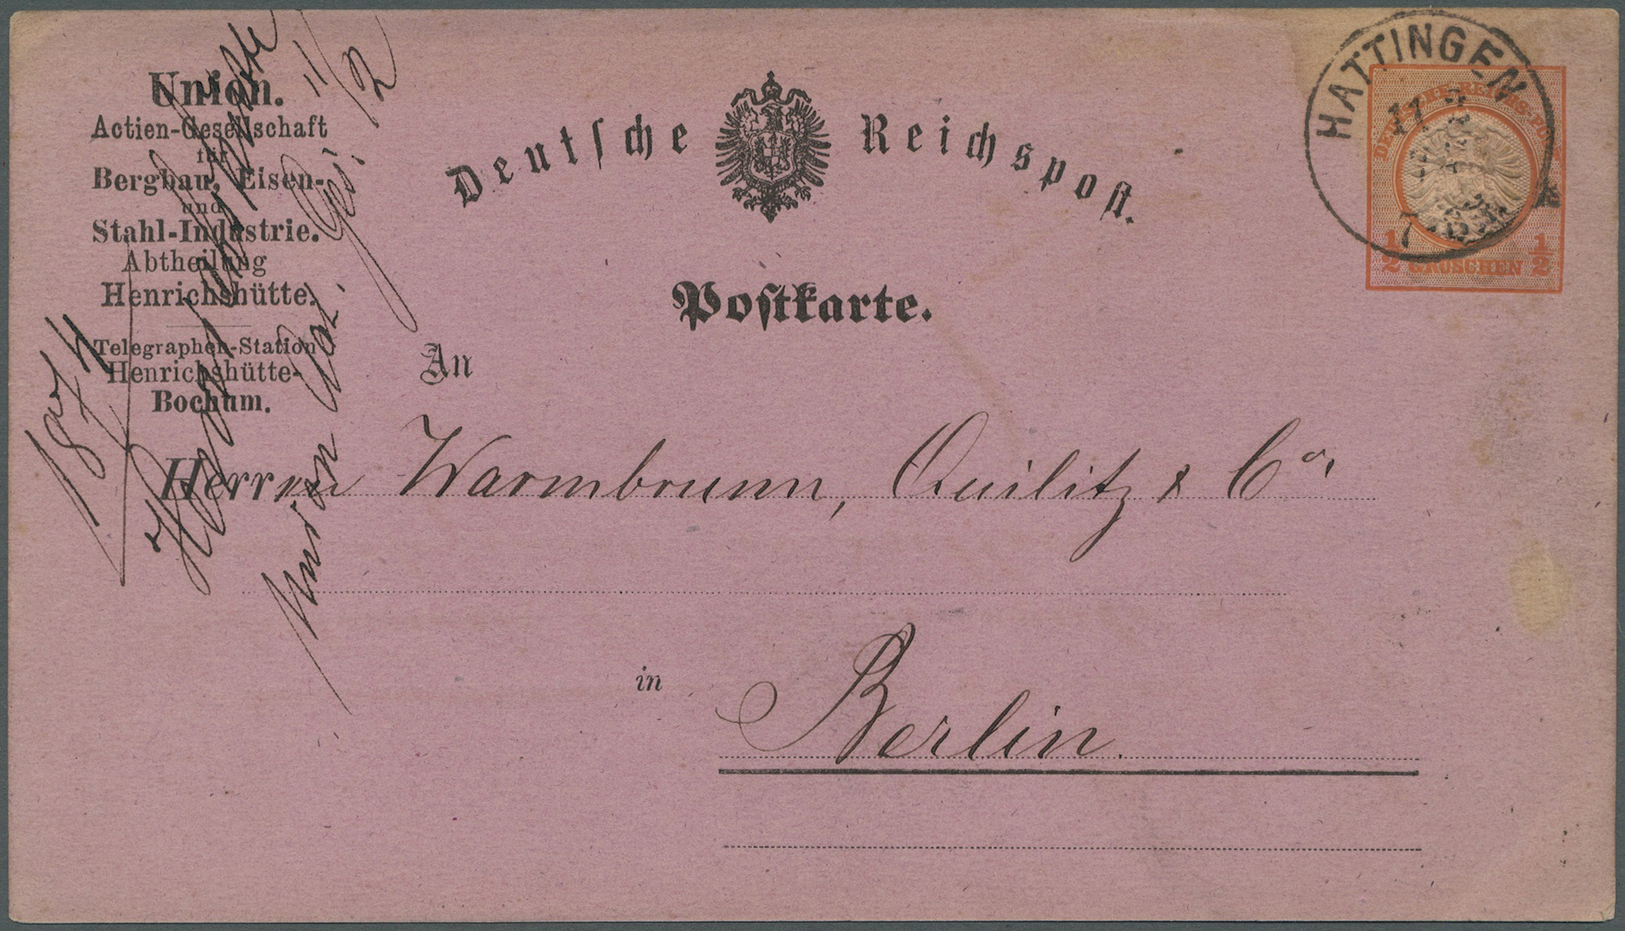 Union.
Actien-Gesellschaft
für
Bergbau, Eisen-
und
Stahl-Industrie.
Abtheilung
Henrichshütte.
Telegraphen-Station
Henrichshütte-
Bochum.
Deutſche Reichspoſt.
HATTINGEN
DEUTSCHE REICHS-POST
½ GROSCHEN ½
Poſtkarte.
An
Herrn Warmbrunn, Quilitz & Co.
in Berlin.
1874
11/2